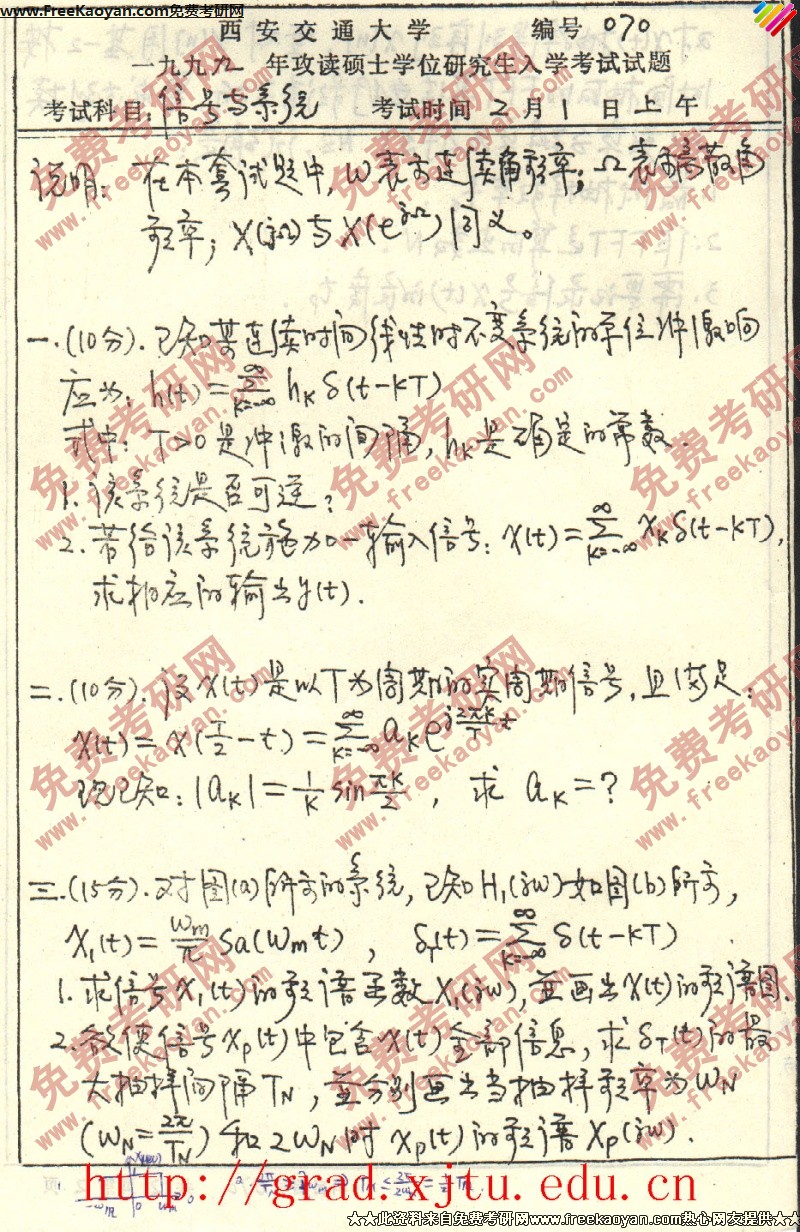 www.FreeKaoyan.com免费考研网
FreeKaoyan
西安交通大学 编号 070
一九九九年攻读硕士学位研究生入学考试试题
考试科目:信号与系统 考试时间 2月1日上午
说明:在本套试题中,ω表示连续角频率;Ω表示离散角
频率;X(jΩ)与X(e^{jΩ})同义。
一.(10分).已知某连续时间线性时不变系统的单位冲激响
应为:h(t)=∑_{k=-∞}^{∞} h_K δ(t-KT)
式中:T>0是冲激的间隔,h_K是确定的常数.
1.该系统是否可逆?
2.若给该系统施加一输入信号:x(t)=∑_{k=-∞}^{∞} x_K δ(t-KT),
求相应的输出y(t).
二.(10分).设x(t)是以T为周期的实周期信号,且满足:
x(t)=x(T/2-t)=∑_{k=-∞}^{∞} a_K e^{j(2πK/T)t}
现已知:|a_K|=1/K sin πK/2,求 a_K=?
三.(15分).对图(a)所示的系统,已知H_1(jω)如图(b)所示,
x_1(t)=ω_m/π Sa(ω_m t),δ_T(t)=∑_{k=-∞}^{∞} δ(t-KT)
1.求信号x_1(t)的频谱函数X_1(jω),并画出x(t)的频谱图.
2.欲使信号x_p(t)中包含x(t)全部信息,求δ_T(t)的最
大抽样间隔T_N,并分别画出当抽样频率为ω_N
(ω_N=2π/T_N)和2ω_N时x_p(t)的频谱X_p(jω).
http://grad.xjtu.edu.cn
★★此资料来自免费考研网www.freekaoyan.com热心网友提供★★
免费考研网
www.freekaoyan.com